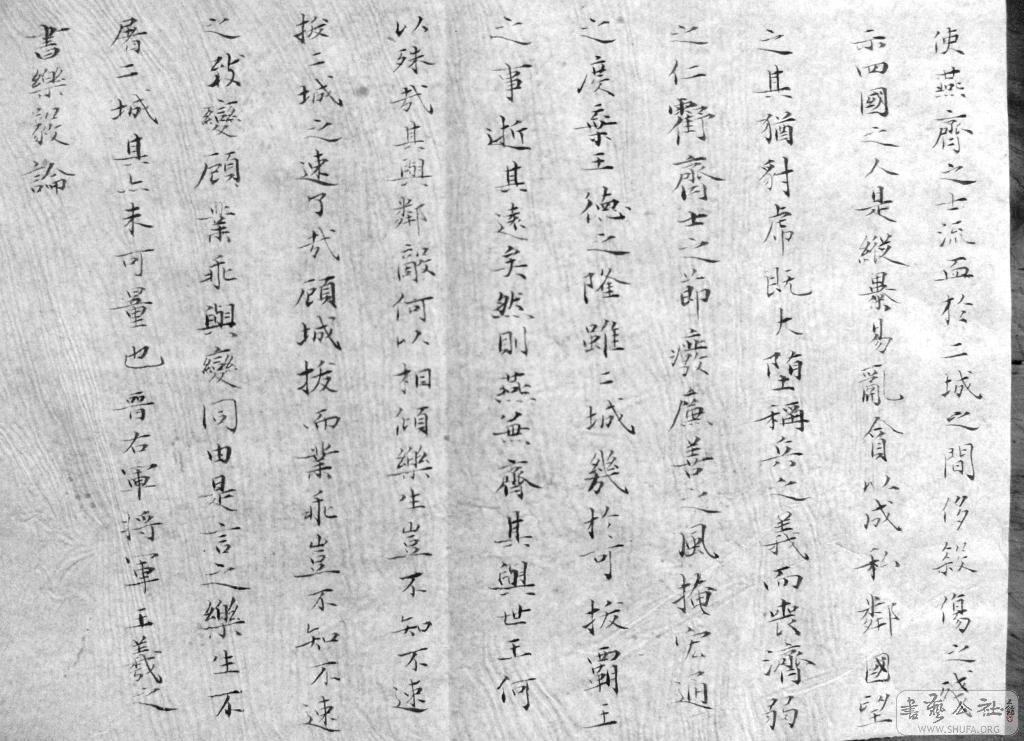 使燕齊之士流血於二城之間侈煞傷之殘
示四國之人是縱暴易亂貪以成私鄰國望
之其猶豺虎既大墮稱兵之義而喪濟弱
之仁虧齊士之節癈廉善之風掩宏通
之度棄王德之隆雖二城幾於可拔霸王
之事逝其遠矣然則燕雖兼齊其與世主何
以殊哉其與鄰敵何以相傾樂生豈不知不速
拔二城之速了哉顧城拔而業乖豈不知不速
之致變顧業乖與變同由是言之樂生不
屠二城其亦未可量也 晉右軍將軍王羲之
書樂毅論
書藝公社
WWW.SHUFA.ORG